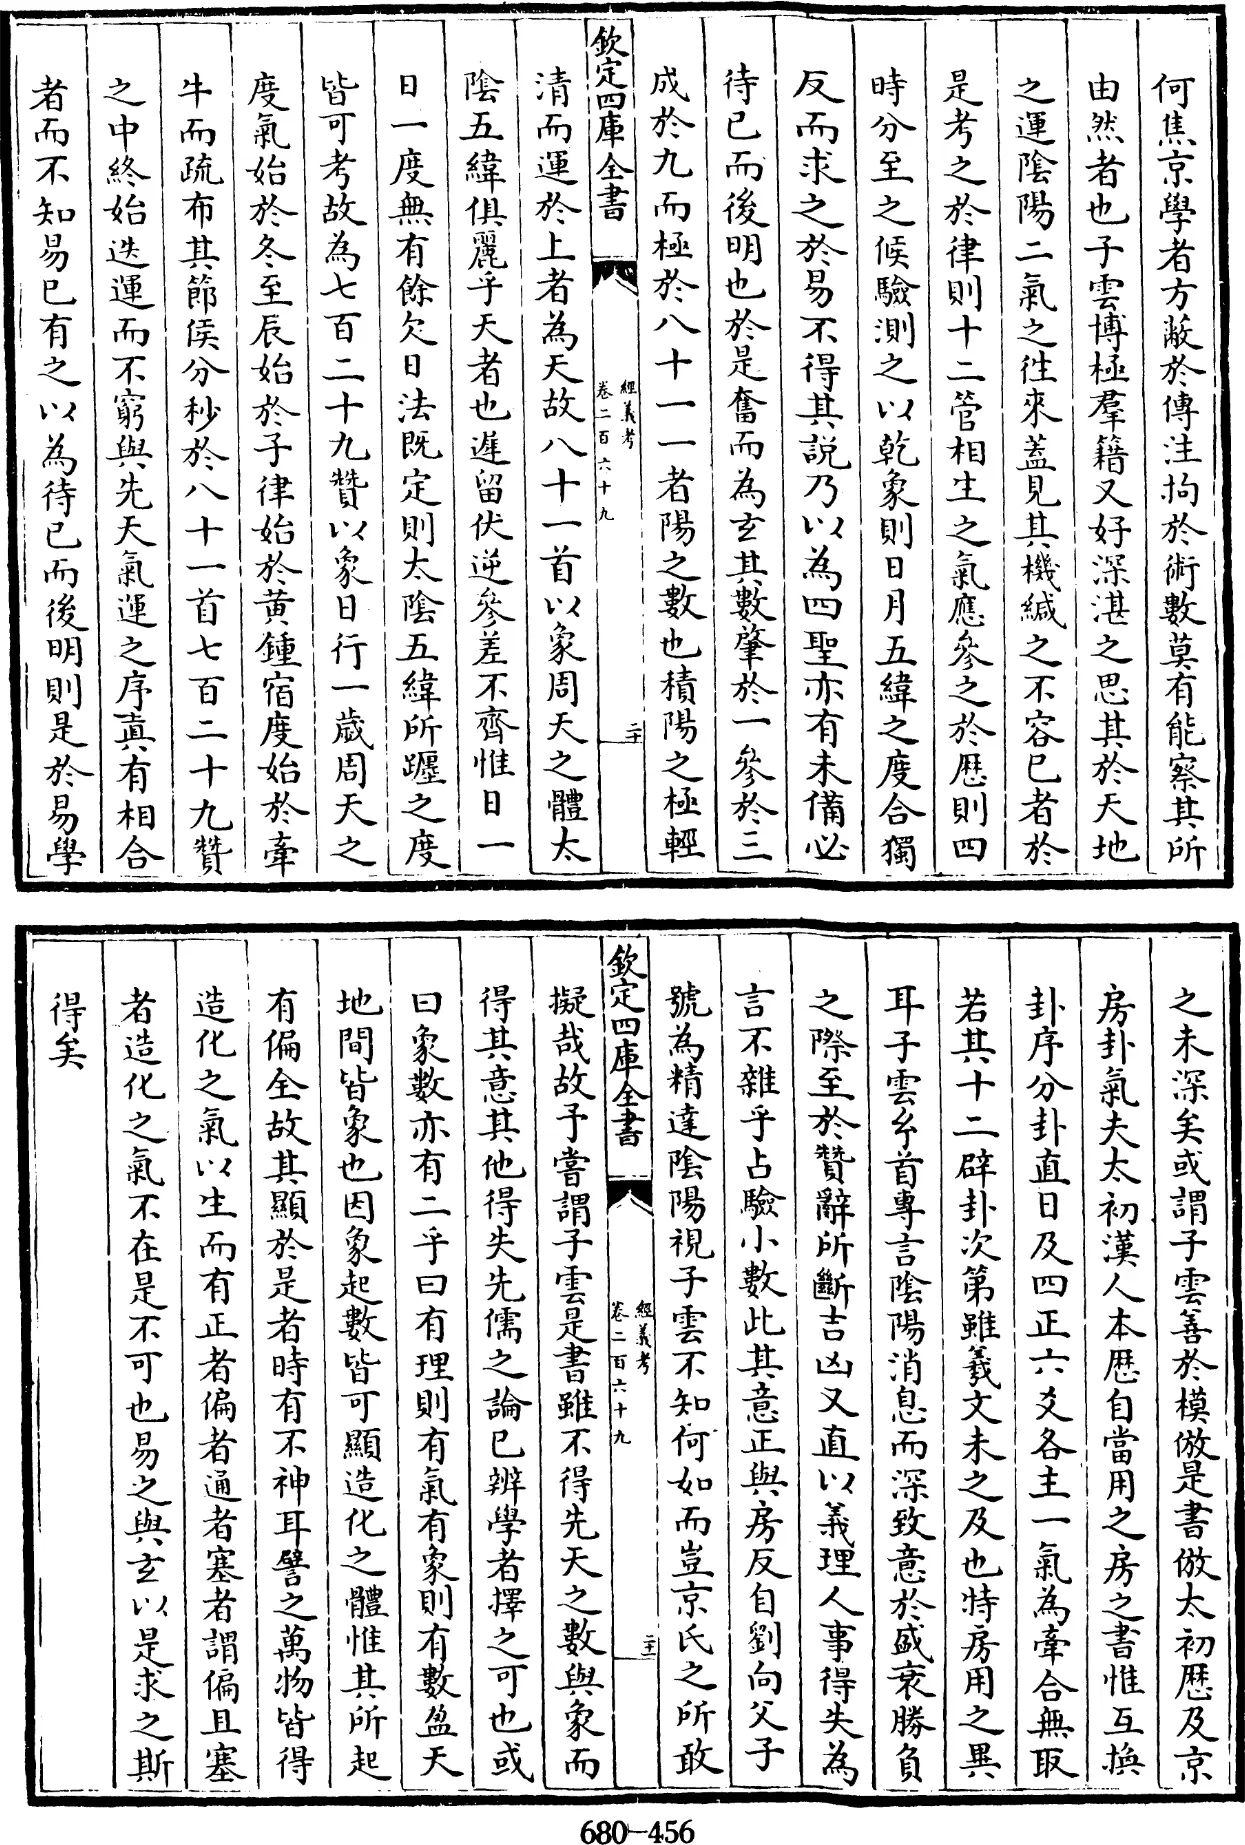 何焦京學者方蔽於傳注拘於術數莫有能察其所
由然者也子雲博極羣籍又好深湛之思其於天地
之運陰陽二氣之徃來蓋見其機緘之不容已者於
是考之於律則十二管相生之氣應參之於歴則四
時分至之候驗測之以乾象則日月五緯之度合獨
反而求之於易不得其說乃以為四聖亦有未備必
待已而後明也於是奮而為玄其數肇於一參於三
成於九而極於八十一一者陽之數也積陽之極輕
欽定四庫全書
經義考
卷二百六十九
二十
清而運於上者為天故八十一首以象周天之體太
陰五緯俱麗乎天者也遲留伏逆參差不齊惟日一
日一度無有餘欠日法既定則太陰五緯所躔之度
皆可考故為七百二十九贊以象日行一歲周天之
度氣始於冬至辰始於子律始於黄鍾宿度始於牽
牛而疏布其節侯分秒於八十一首七百二十九贊
之中終始迭運而不窮與先天氣運之序真有相合
者而不知易已有之以為待已而後明則是於易學
之未深矣或謂子雲善於模倣是書倣太初歴及京
房卦氣夫太初漢人本歴自當用之房之書惟互換
卦序分卦直日及四正六爻各主一氣為牽合無取
若其十二辟卦次第雖羲文未之及也特房用之異
耳子雲乡首專言陰陽消息而深致意於盛衰勝負
之際至於贊辭所斷吉凶又直以義理人事得失為
言不雜乎占驗小數此其意正與房反自劉向父子
號為精達陰陽視子雲不知何如而豈京氏之所敢
欽定四庫全書
經義考
卷二百六十九
二十一
擬哉故予嘗謂子雲是書雖不得先天之數與象而
得其意其他得失先儒之論已辨學者擇之可也或
曰象數亦有二乎曰有理則有氣有象則有數盈天
地間皆象也因象起數皆可顯造化之體惟其所起
有偏全故其顯於是者時有不神耳譬之萬物皆得
造化之氣以生而有正者偏者通者塞者謂偏且塞
者造化之氣不在是不可也易之與玄以是求之斯
得矣
680-456